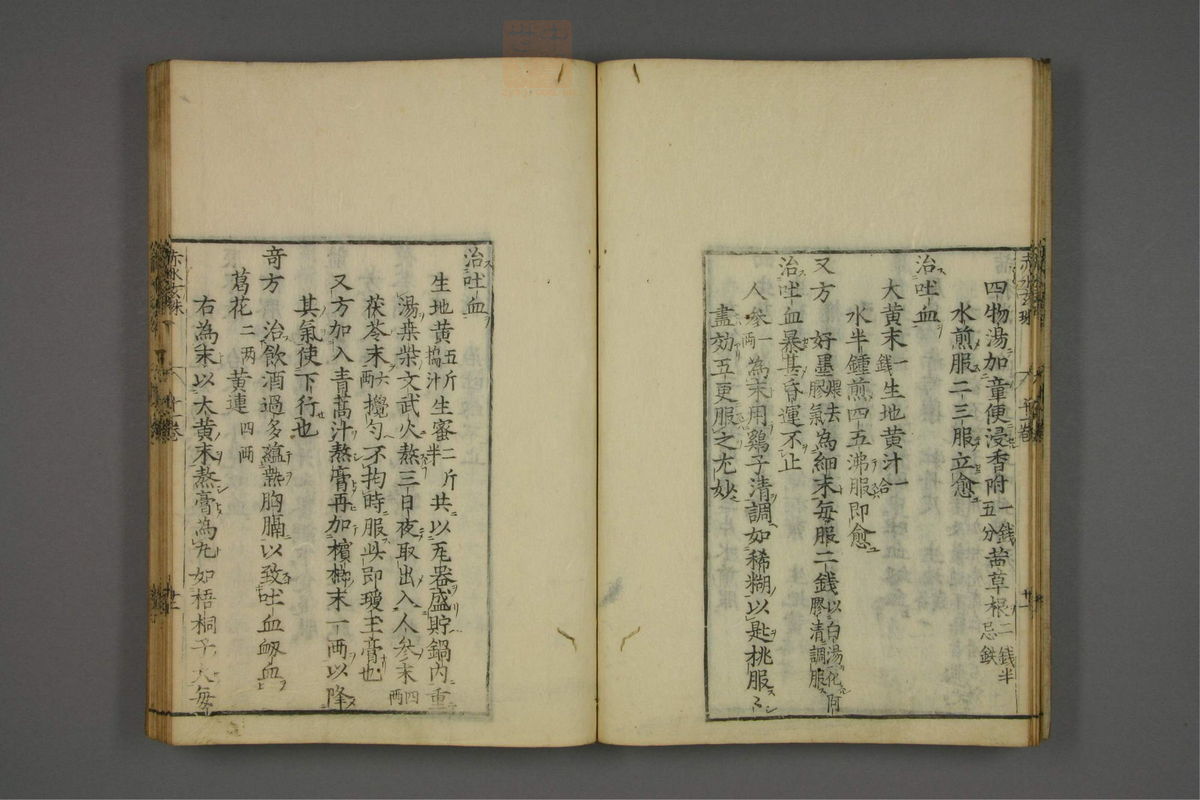 四物湯加童便浸香附一錢五分茜草根二錢半忌鉄
水煎服二三服立愈
治吐血
大黄末一錢生地黄汁一合
水半鍾煎四五沸服即愈
又方 好墨煨去膠氣為細末毎服二錢以白湯化阿膠清調服
治吐血暴甚昏運不止
人參一両為末用鷄子清調如稀糊以匙挑服
盡効五更服之尤妙
治吐血
生地黄五斤搗汁生蜜二斤半共以瓦器盛貯鍋内重
湯桒柴文武火熬三日夜取出入人參末四両
茯苓末六両攪匀不拘時服此即瓊玉膏也
又方加入青蒿汁熬膏再加檳榔末一両以降
其氣使下行也
竒方 治飲酒過多蘊熱胸膈以致吐血衂血
葛花二両黄連四両
右為末以大黄末熬膏為丸如梧桐子大毎
赤水玄珠